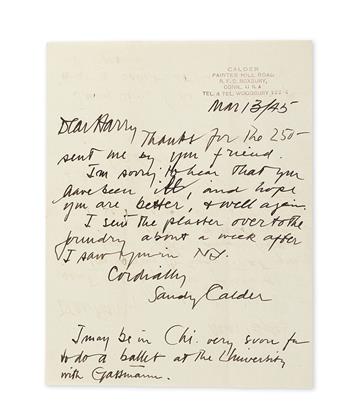 CALDER
PAINTER HILL ROAD
R.F.D. ROXBURY,
CONN. U S A
TEL. & TEL. WOODBURY 122-2
Mar 13/45
Dear Harry
Thanks for the 250-
sent me by your friend.
I'm sorry to hear that you
have been ill, and hope
you are, better, & well again.
I sent the plaster over to the
foundry about a week after
I saw you in NY.
Cordially
Sandy Calder
I may be in Chi. very soon for
to do a ballet at the University
with Gassmann.